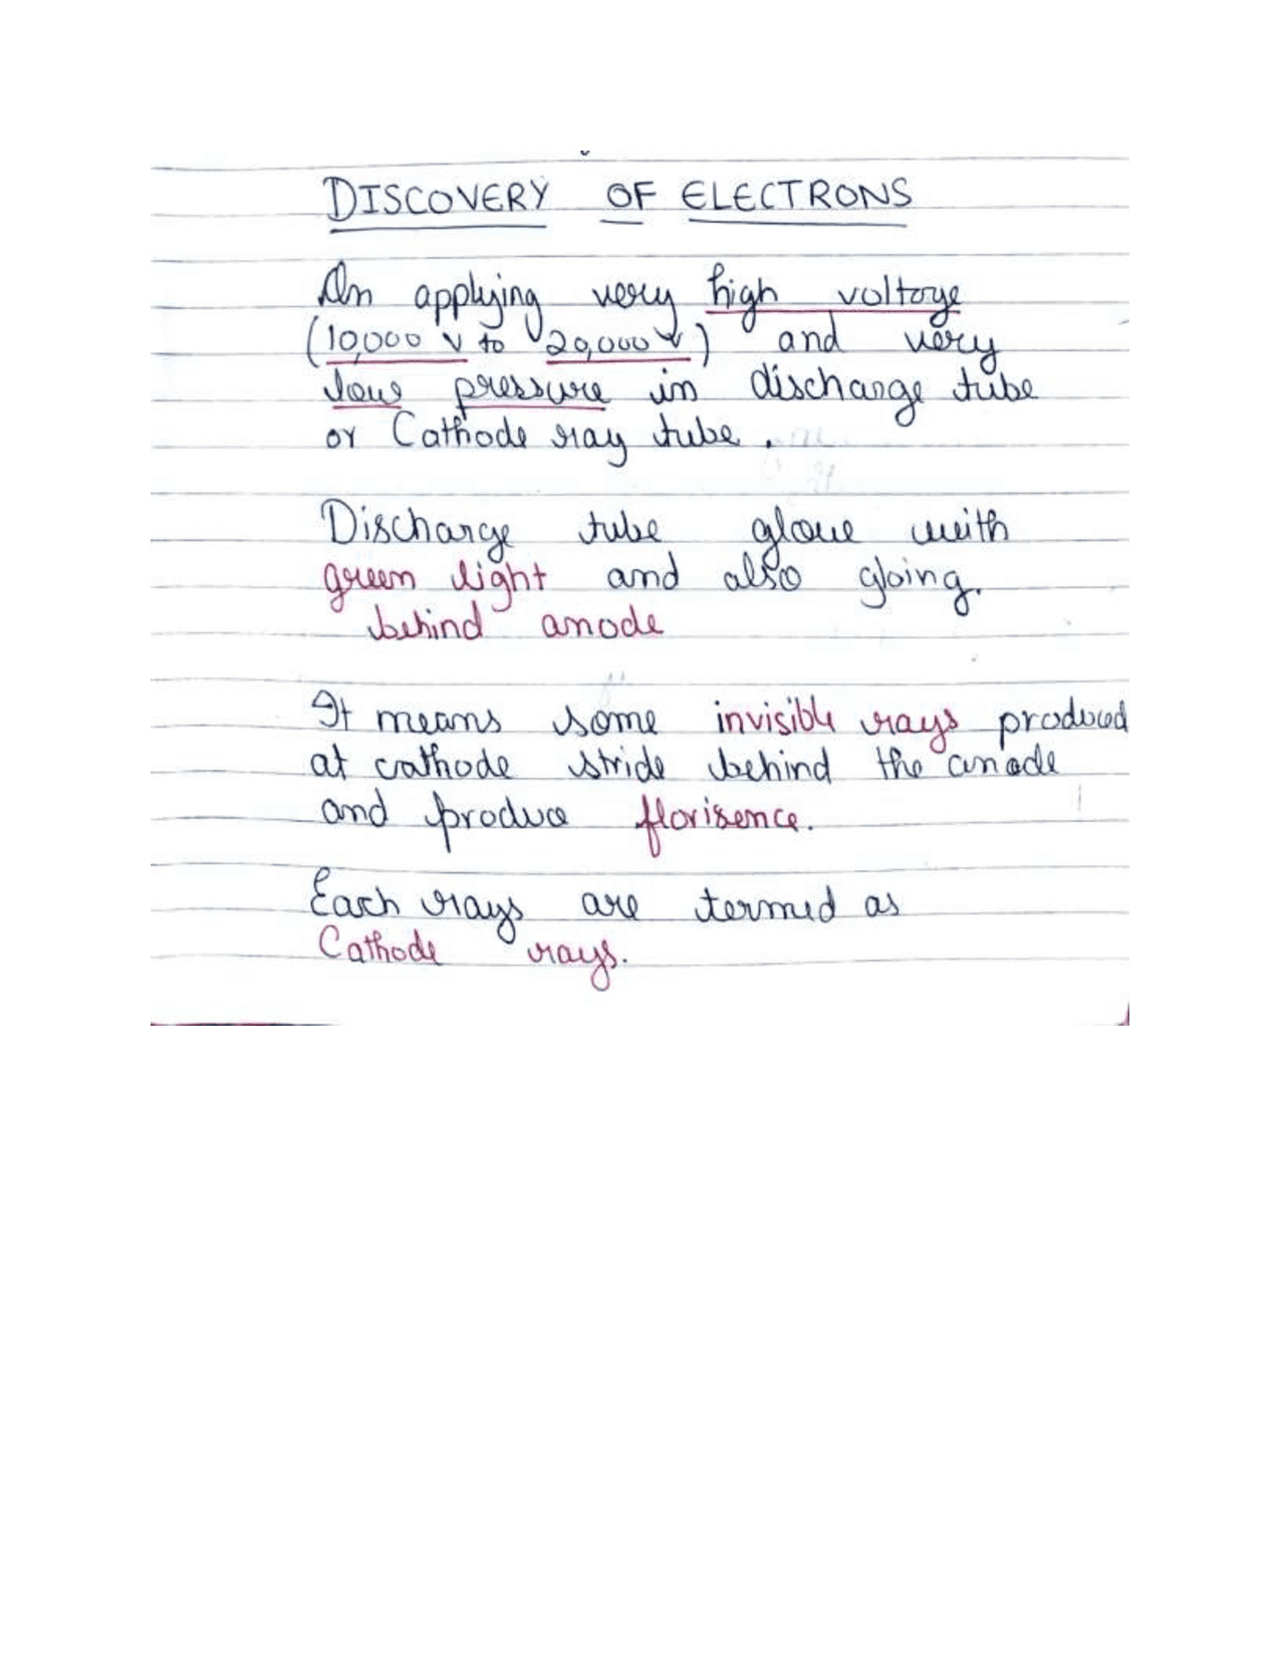 DISCOVERY OF ELECTRONS
On applying very high voltage
(10,000 V to 20,000 V) and very
low pressure in discharge tube
or Cathode ray tube.
Discharge tube glowe with
green light and also gloing.
behind anode
It means some invisible rays produced
at cathode stride behind the anode
and produce florisence.
Each rays are termed as
Cathode rays.